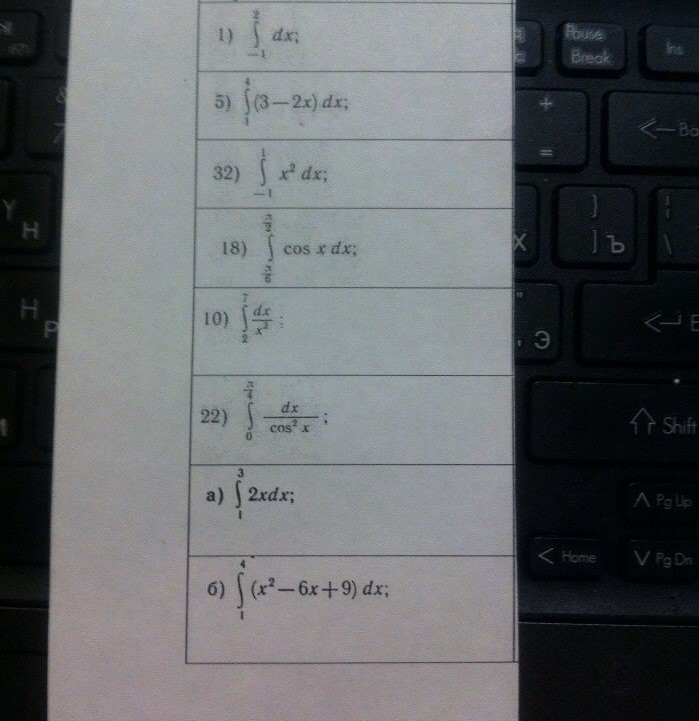 1) ∫₋₁² dx;
5) ∫₁⁴ (3 — 2x) dx;
32) ∫₋₁¹ x² dx;
18) ∫_{π/6}^{π/2} cos x dx;
10) ∫₂⁷ dx/x² ;
22) ∫₀^{π/4} dx/cos² x ;
а) ∫₁³ 2xdx;
б) ∫₁⁴ (x² — 6x + 9) dx;
Pause
Break
Ins
+
=
Y
Н
}
]
Ъ
\
H
Р
"
Э
Shift
Pg Up
Home
Pg Dn